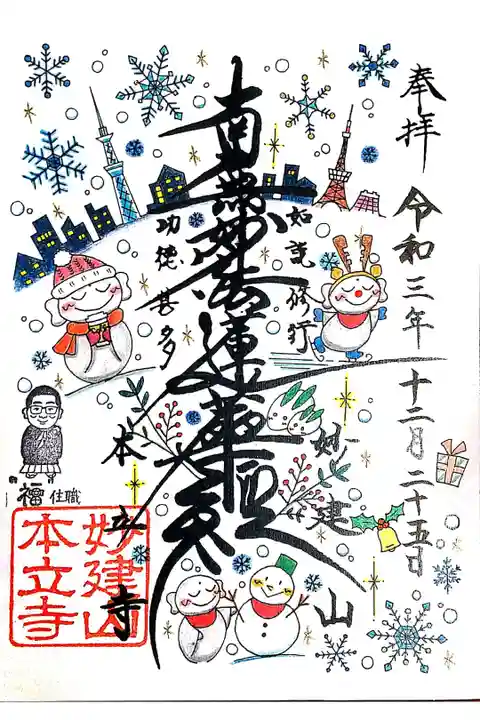 奉拝
令和三年 十二月二十五日
如説修行
南無妙法蓮華経
功徳甚多
妙建山
本立寺
福 住職
妙建山
本立寺